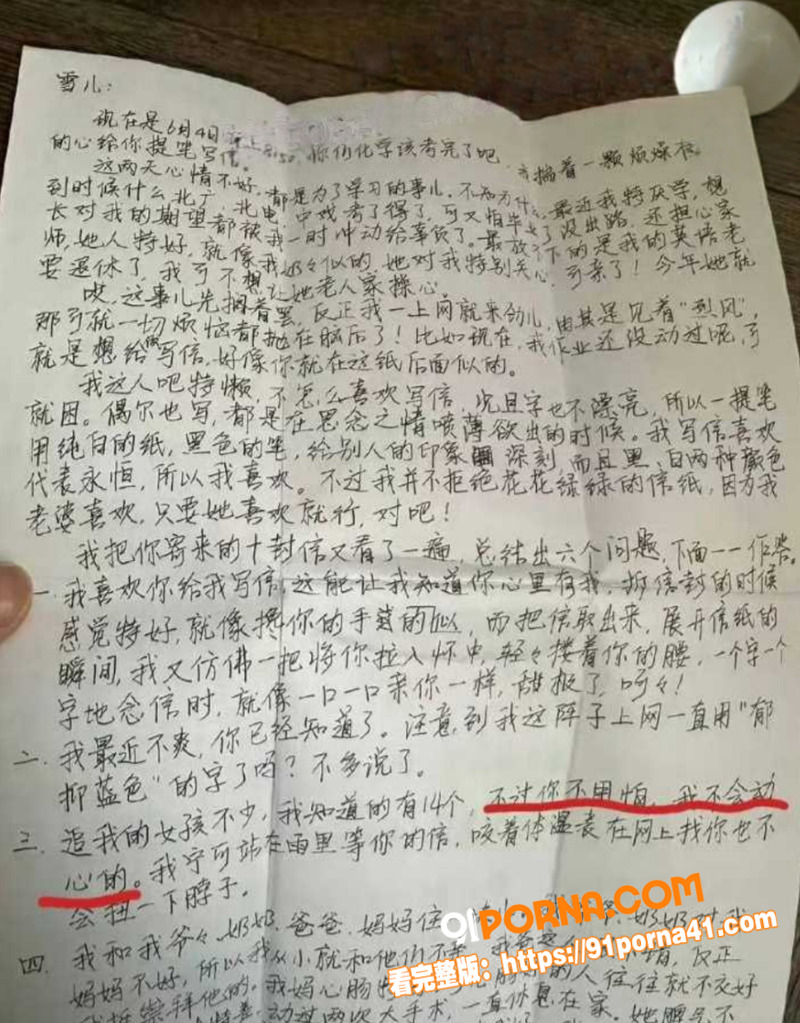 雪儿：
现在是6月4日上8:50，你们化学该考完了吧，揣着一颗烦燥
的心给你提笔写信。
这两天心情不好，都是为了学习的事儿，不知为什么，最近我特厌学，想
到时候什么北广、北电、中戏考了得了，可又怕毕业了没出路，还担心家
长对我的期望都被我一时冲动给辜负了。最放不下的是我的英语老
师，她人特好，就像我奶々似的，她对我特别关心，可亲了！今年她就
要退休了，我可不想让她老人家操心。
哎，这事儿先搁着罢，反正我一上网就来劲儿，由其是见着“烈风”，
那可就一切烦恼都抛在脑后了！比如现在，我作业还没动过呢，可
就是想给你写信，好像你就在这纸后面似的。
我这人吧特懒，不怎么喜欢写信，况且字也不漂亮，所以一提笔
就困。偶尔也写，都是在思念之情喷薄欲出的时候。我写信喜欢
用纯白的纸，黑色的笔，给别人的印象深刻，而且黑、白两种颜色
代表永恒，所以我喜欢。不过我并不拒绝花花绿绿的信纸，因为我
老婆喜欢，只要她喜欢就行，对吧！
我把你寄来的十封信又看了一遍，总结出六个问题，下面一一作答。
一．我喜欢你给我写信，这能让我知道你心里有我，拆信封的时候
感觉特好，就像搀你的手似的，而把信取出来，展开信纸的
瞬间，我又仿佛一把将你拉入怀中，轻々搂着你的腰，一个字一个
字地念信时，就像一口一口亲你一样，甜极了，呵々！
二．我最近不爽，你已经知道了。注意到我这阵子上网一直用“郁
抑蓝色”的字了吗？不多说了。
三．追我的女孩不少，我知道的有14个，不过你不用怕，我不会动
心的。我宁可站在雨里等你的信，咬着体温表在网上找你也不
会扭一下脖子。
四．我和我爷々、奶奶、爸爸、妈妈住
妈妈不好，所以我从小就和他们不亲，我爸爸反正
我挺崇拜他的。我妈心肠的人往往就不交好
动过两次大手术，一直休息在家。她脾气不
91PORNA.COM
看完整版：https://91porna41.com